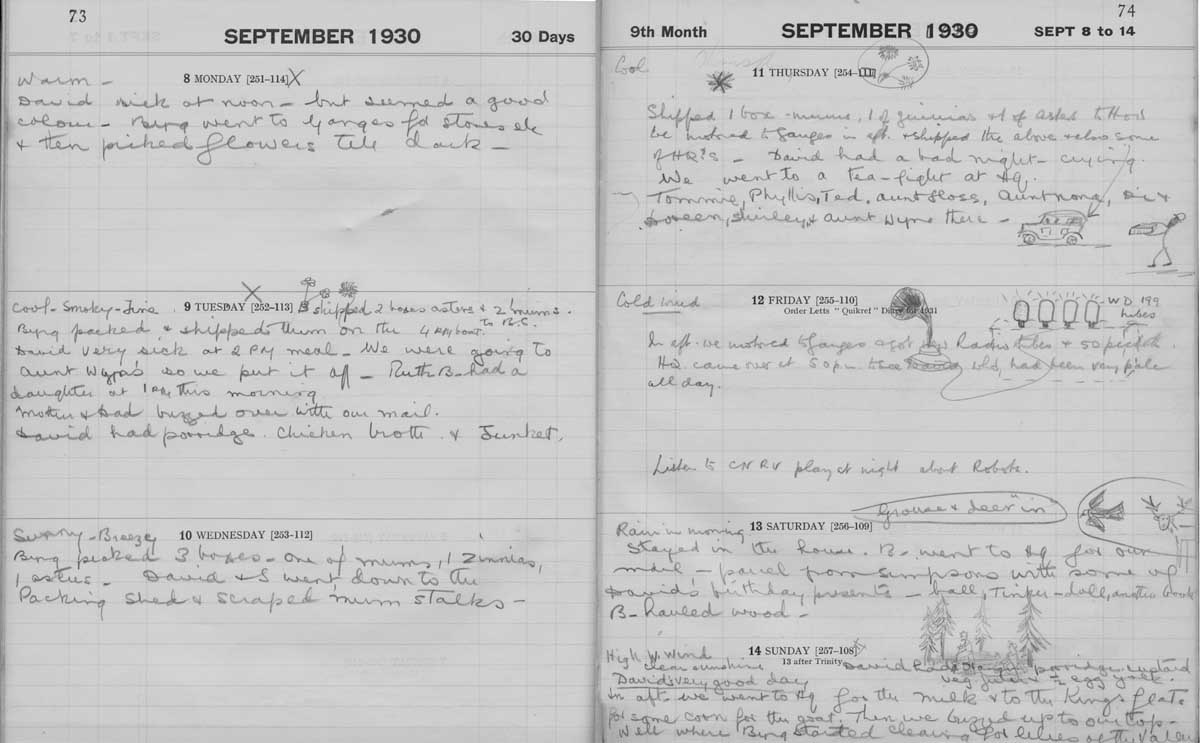 73
SEPTEMBER 1930
30 Days
8 MONDAY [251-114]
Warm -
David sick at noon - but seemed a good
colour - Byng went to Ganges for stores etc
& then picked flowers till dark -
9 TUESDAY [252-113]
B shipped 2 boxes asters & 2 'mums.
Cool - Smoky - Fine
Byng packed & shipped them on the 4 PM boat. to B.C.
David very sick at 2 PM meal - We were going to
Aunt so we put it off - Ruth B - had a
daughter at 1 this morning
Mother & Dad buzzed over with our mail.
David had porridge. Chicken broth. & Junket.
10 WEDNESDAY [253-112]
Sunny - Breeze
Byng picked 3 boxes - one of mums, 1 Zinnias,
1 asters - David & I went down to the
Packing shed & scraped 'mum stalks -
74
9th Month
SEPTEMBER 1930
SEPT 8 to 14
11 THURSDAY [254-111]
Cool
Shipped 1 box - mums, 1 of zinnias & 1 of asters to
We motored to Ganges in aft. & shipped the above & also some
of HQ's - David had a bad night - crying.
We went to a tea-fight at HQ.
Tommie, Phyllis, Ted, Aunt Floss, Aunt Nona, Di &
Doreen, Shirley, & Aunt there -
12 FRIDAY [255-110]
Order Letts "Quikref" Diary for 1931
Cold wind
WD 199
tubes
In aft. we motored to Ganges & got Radio tubes & 50
HQ. came over at 5 pm. David cold, had been very pale
all day.
Listen to CNRV play at night about Robots.
Grouse & deer "in"
13 SATURDAY [256-109]
Rain in morning
Stayed in the house. B - went to HQ for our
mail - parcel from Simpsons with some of
David's birthday presents - ball, Tinker-doll, another book
B - hauled wood -
14 SUNDAY [257-108]
13 after Trinity
High W. Wind
clear sunshine
David had porridge custard
veg & ½ egg yolk.
David's very good day
In aft. we went to HQ for the milk & to the King's flats
for some corn for the goat. Then we buzzed up to our top-
well where Byng started clearing for lilies of the Valley